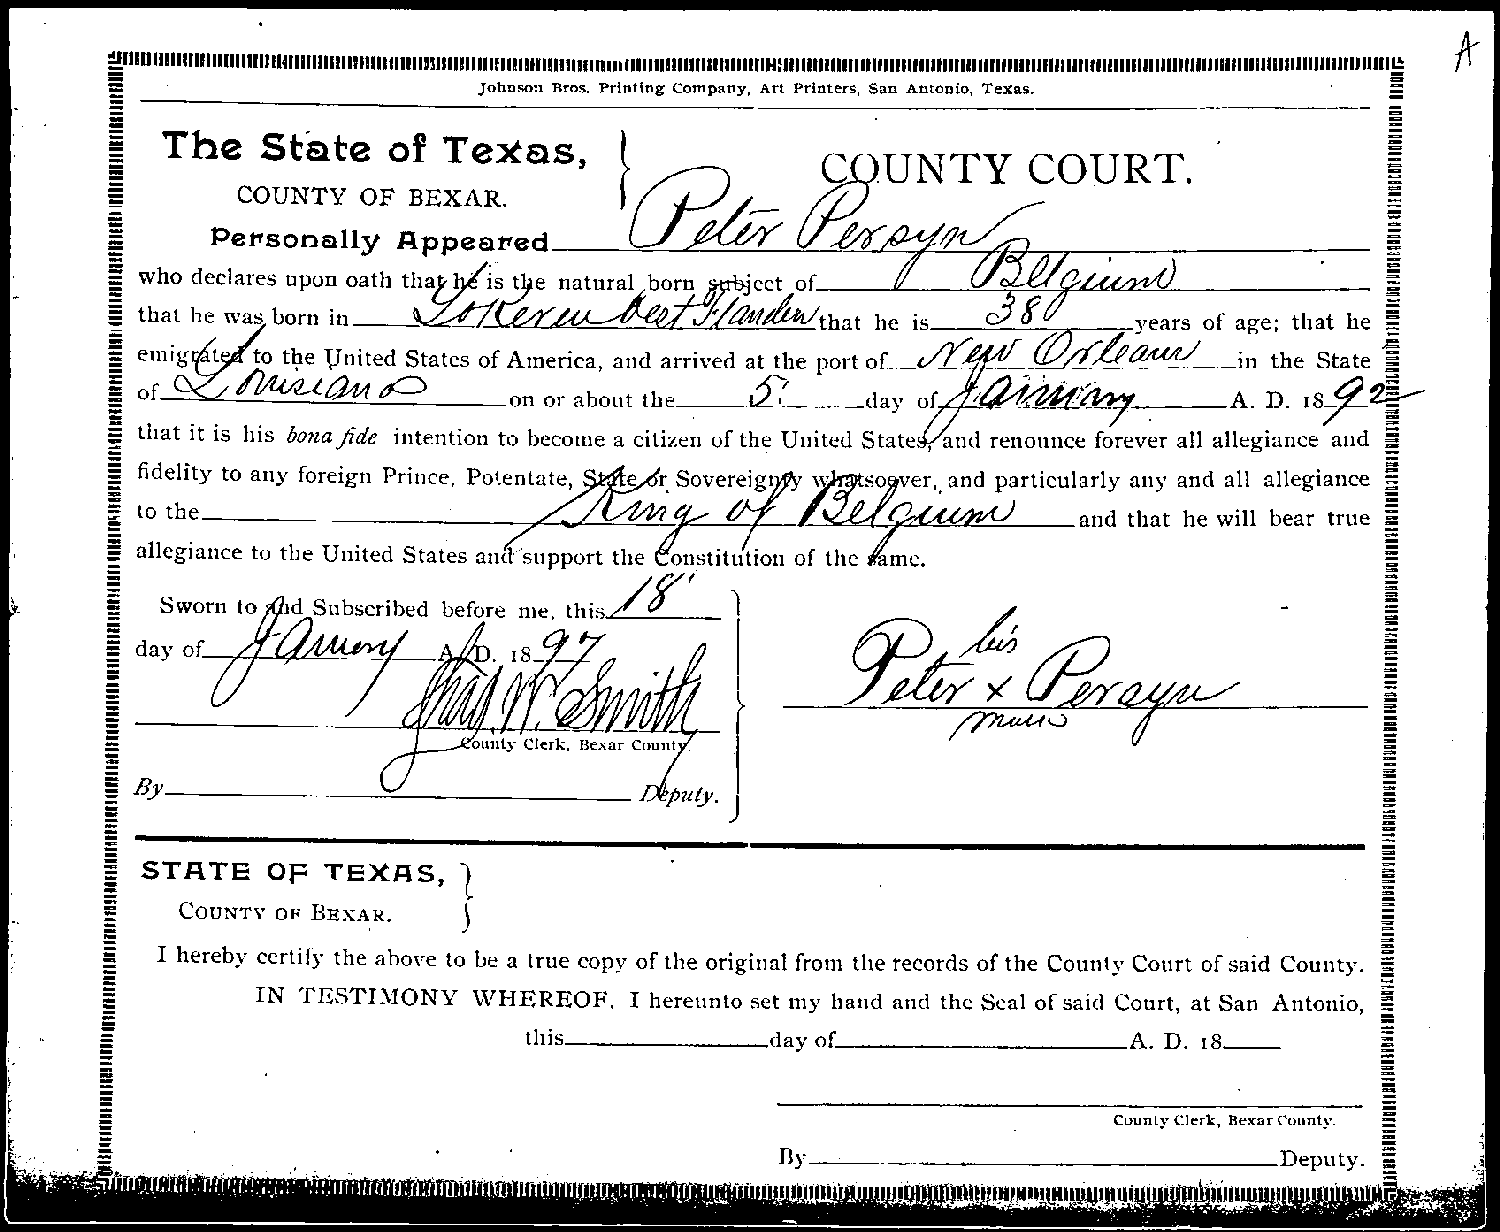 A
Johnson Bros. Printing Company, Art Printers, San Antonio, Texas.
The State of Texas, } COUNTY COURT.
COUNTY OF BEXAR.
Personally Appeared Peter Persyn
who declares upon oath that he is the natural born subject of Belgium
that he was born in Lokeren West Flanders that he is 38 years of age; that he
emigrated to the United States of America, and arrived at the port of New Orleans in the State
of Louisiana on or about the 5 day of January A. D. 1892
that it is his bona fide intention to become a citizen of the United States, and renounce forever all allegiance and
fidelity to any foreign Prince, Potentate, State or Sovereignty whatsoever, and particularly any and all allegiance
to the King of Belgium and that he will bear true
allegiance to the United States and support the Constitution of the same.
Sworn to and Subscribed before me, this 18
day of January A. D. 1897
Thad. W. Smith
County Clerk, Bexar County.
By Deputy.
his
Peter x Persyn
mark
STATE OF TEXAS, }
COUNTY OF BEXAR.
I hereby certify the above to be a true copy of the original from the records of the County Court of said County.
IN TESTIMONY WHEREOF, I hereunto set my hand and the Seal of said Court, at San Antonio,
this day of A. D. 18
County Clerk, Bexar County.
By Deputy.